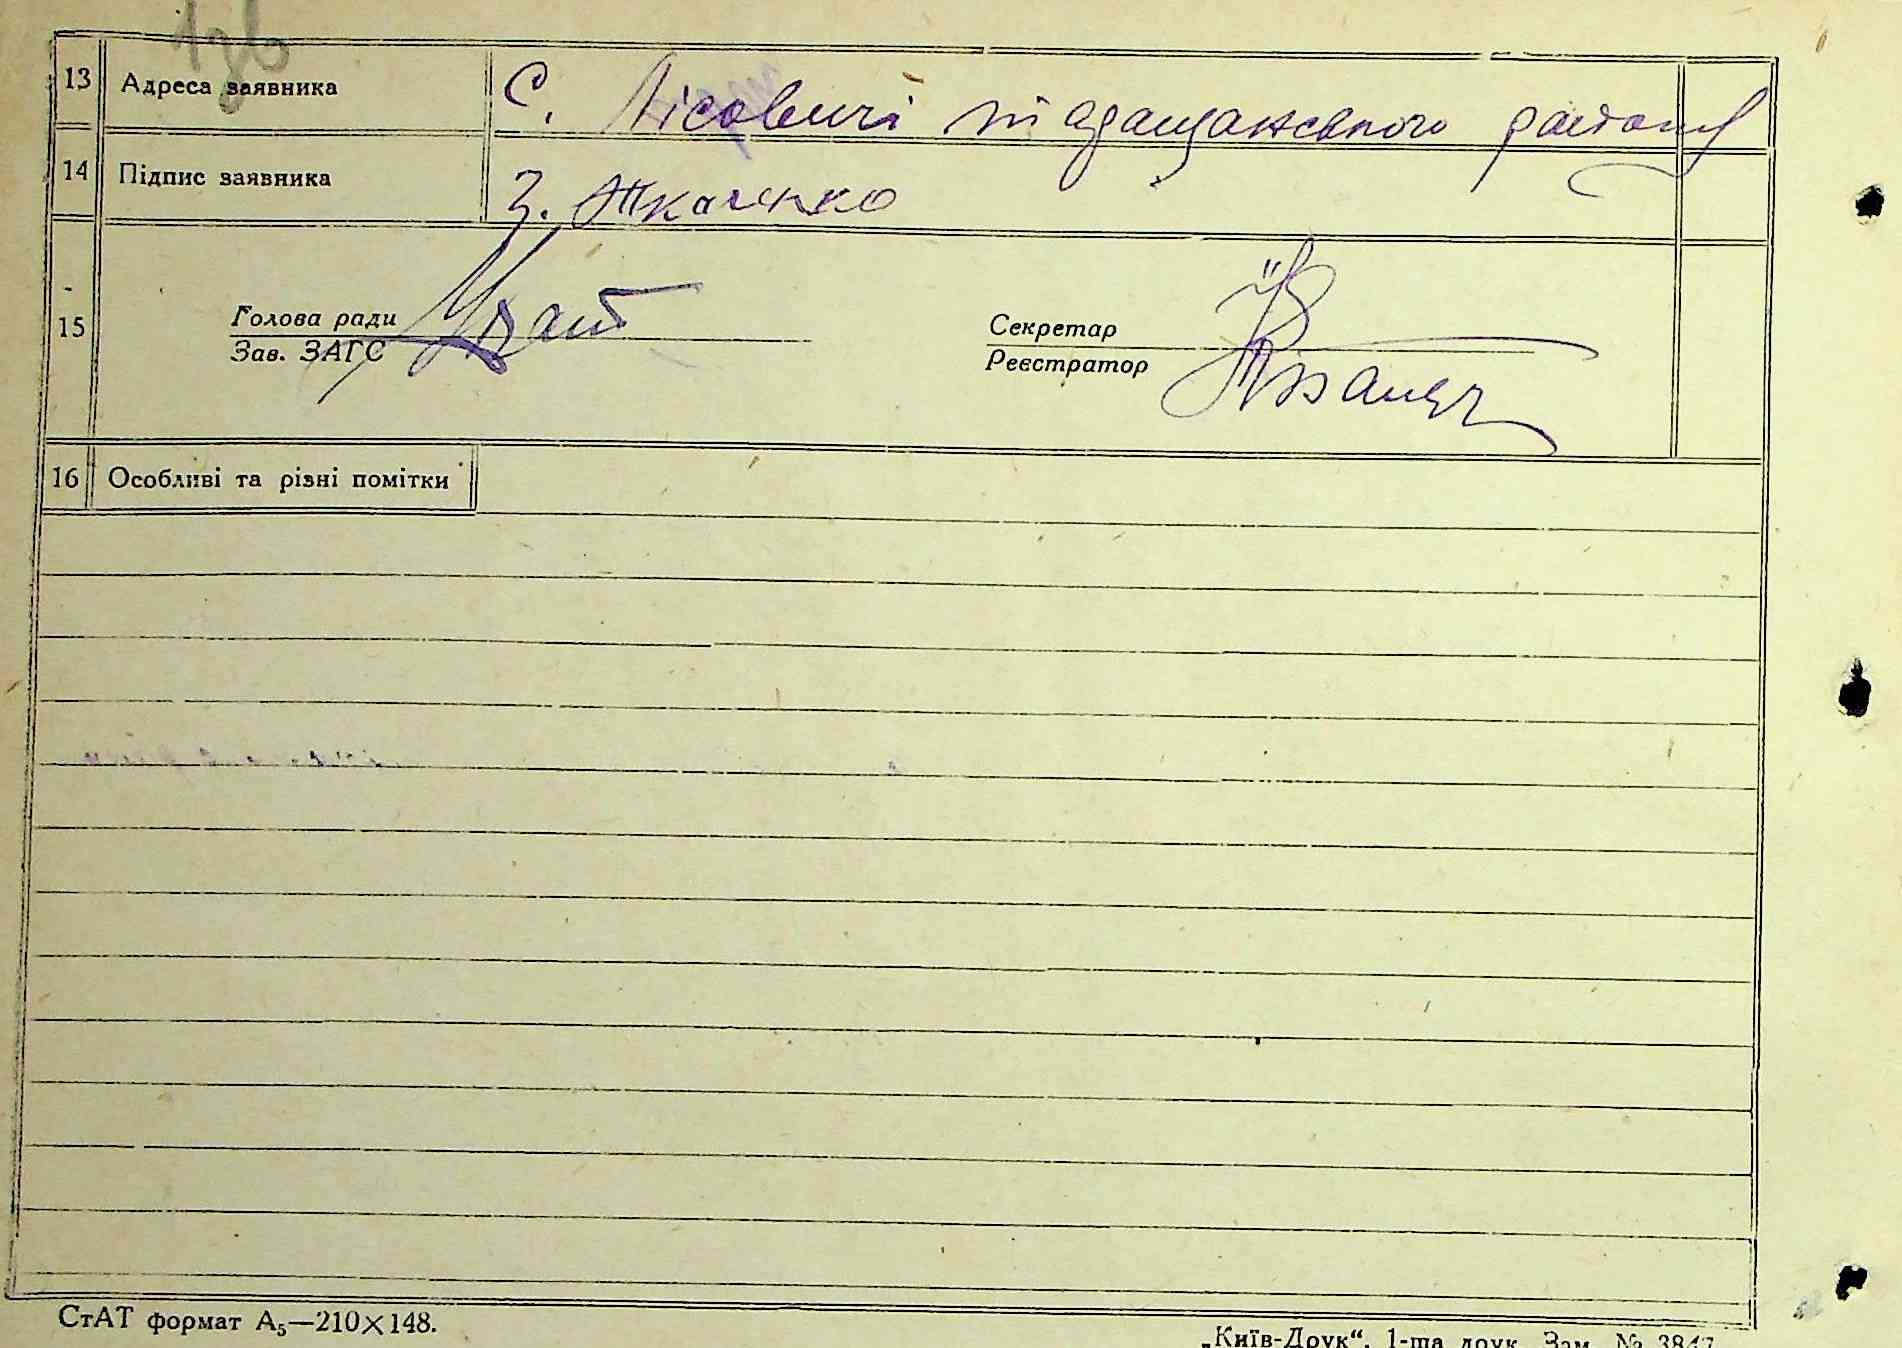 13 Адреса заявника С. Лісовичі таращанського району
14 Підпис заявника З. Ткаченко
15
Голова ради Секретар
Зав. ЗАГС Реєстратор
16 Особливі та різні помітки
СтАТ формат А₅—210×148. „Київ-Друк“, 1-ша друк. Зам. № 3847